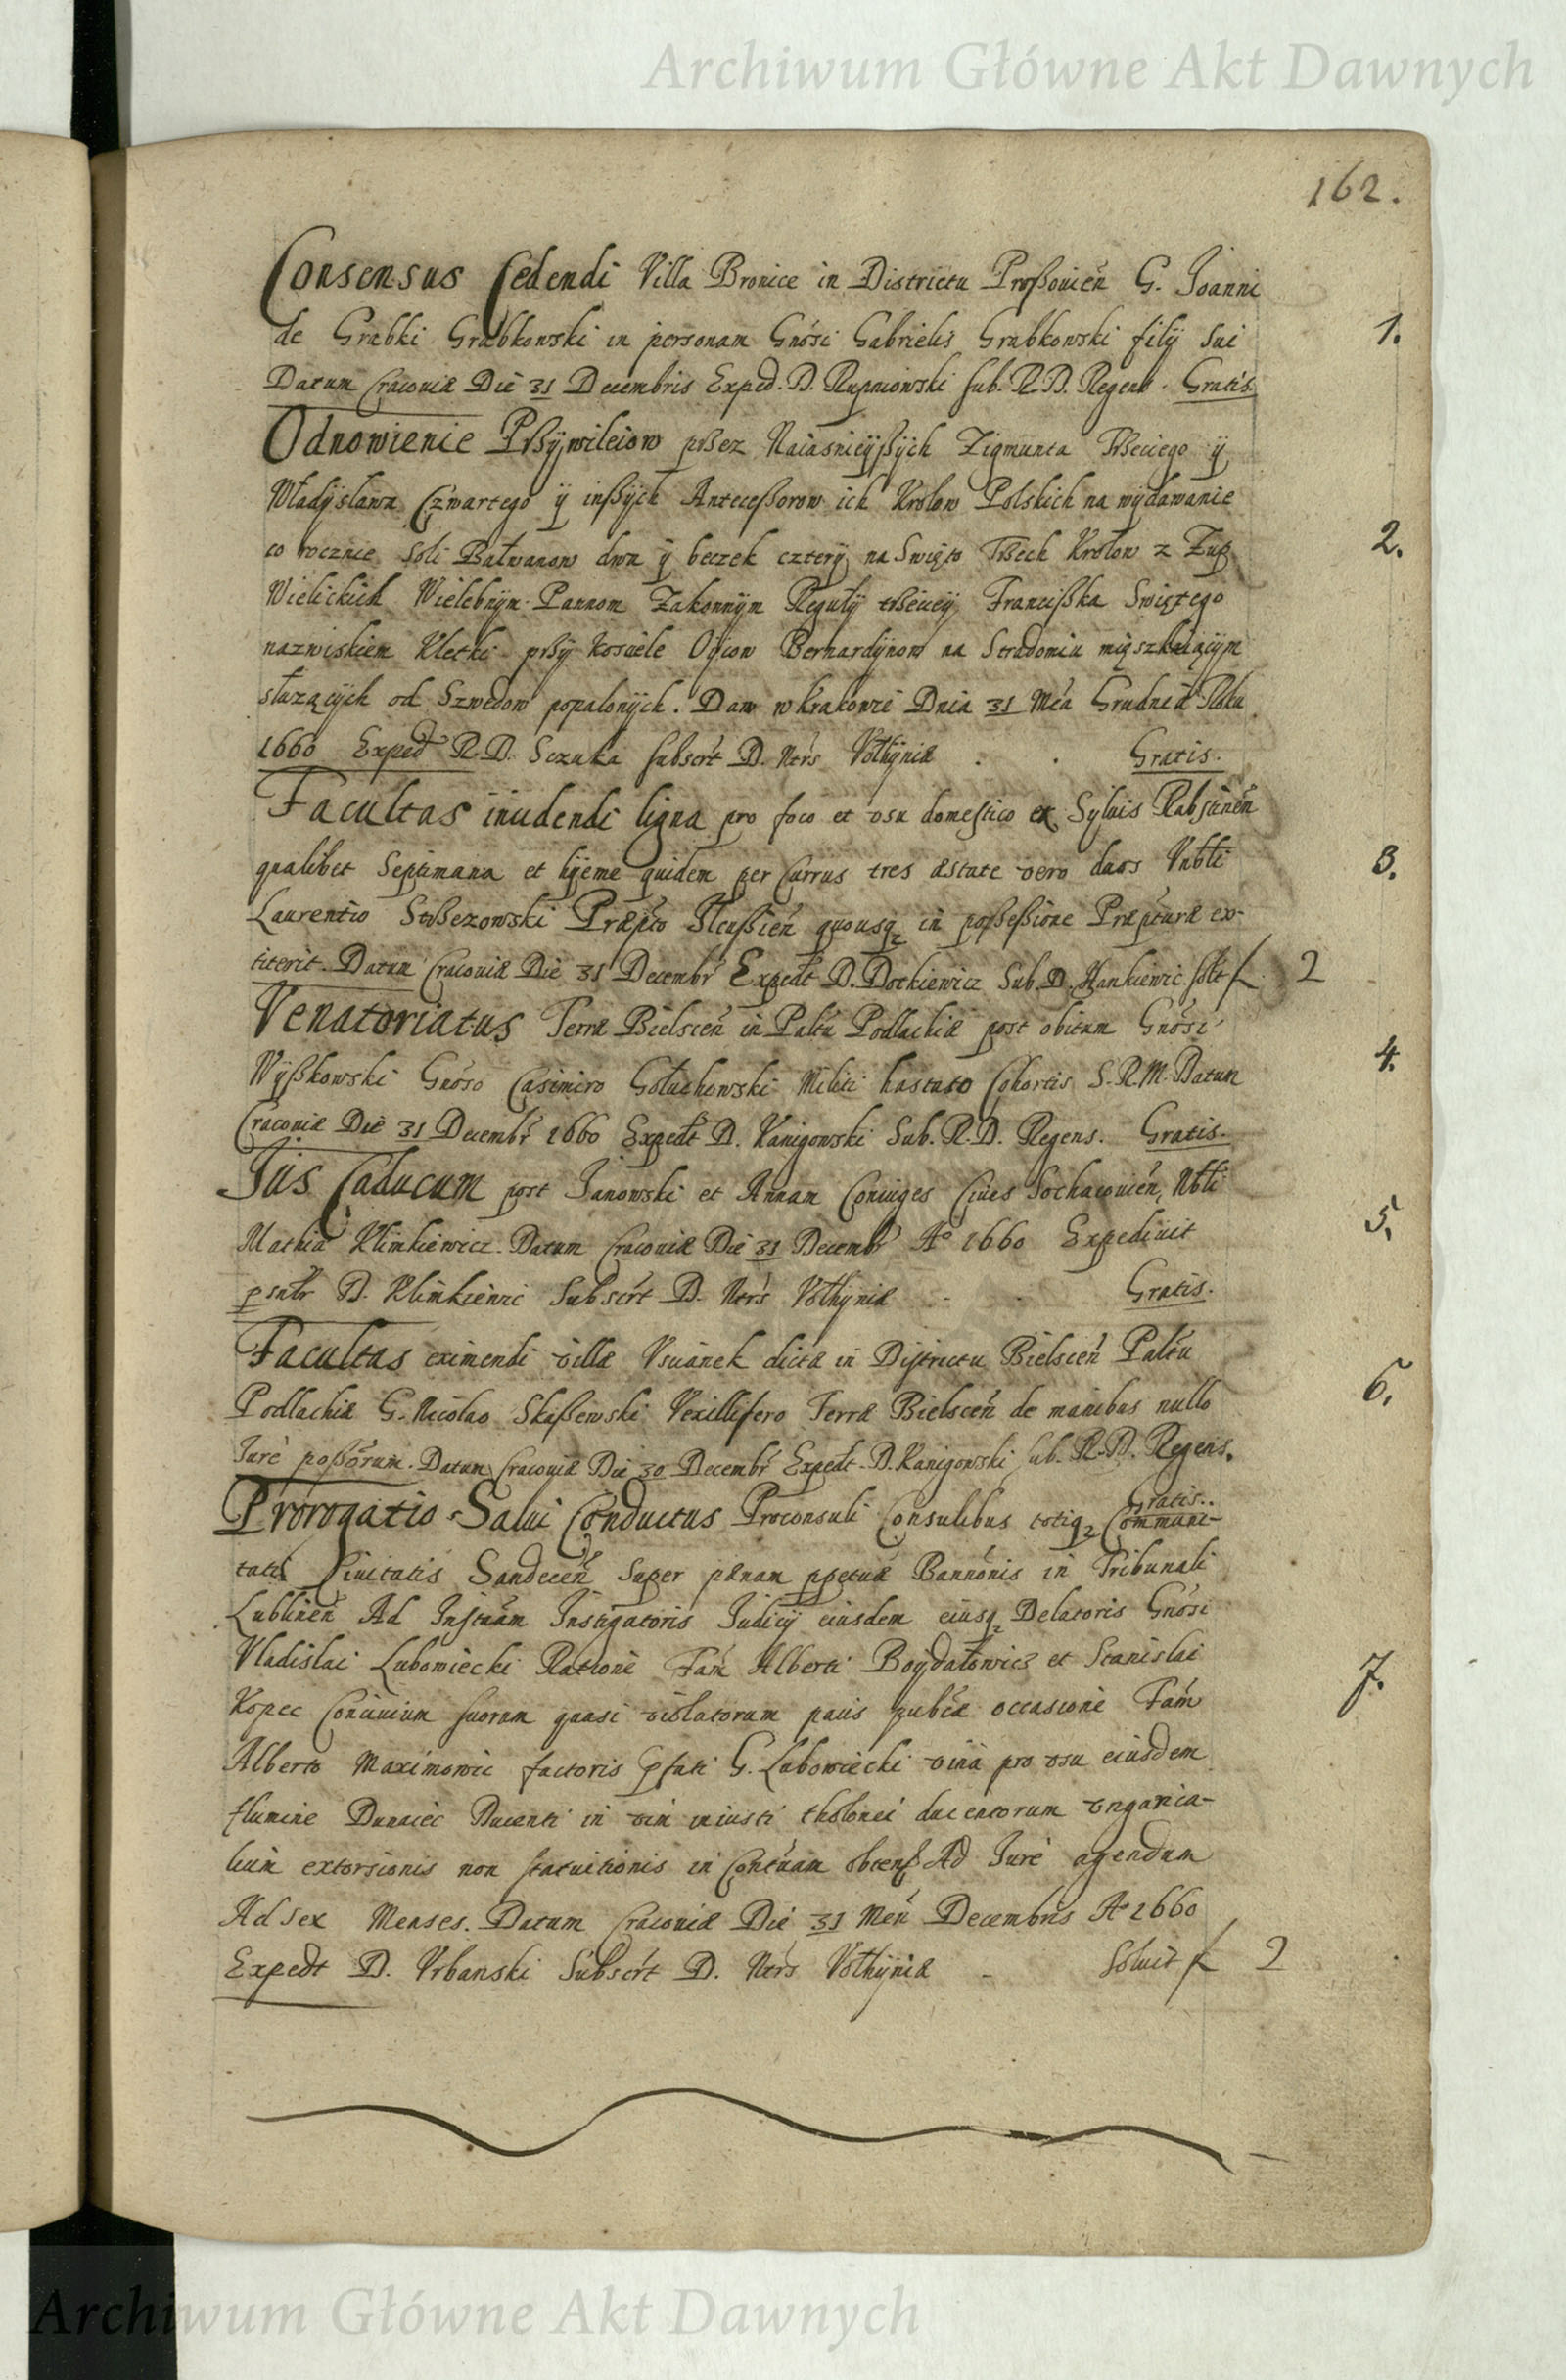 Archiwum Główne Akt Dawnych
162.
Consensus Cedendi Villa Bronice in Districtu Proßouień G. Joanni
de Grabki Grabkowski in personam Gnősi Gabrielis Grabkowski filij sui 1.
Datum Cracouiæ Die 31 Decembris Exped. D. Rupniowski sub. R. D. Regens. Gratis.
Odnowienie Prßÿwileiow prßez Naiasnieÿßÿch Zigmunta Trßeciego ÿ
Władÿsława Czwartego ÿ inßÿch Anteceßorow ich Krolow Polskich na wÿdawanie
co rocznie soli Bałwanow dwa ÿ beczek czterÿ na Swięto Trßech Krolow z Zup 2.
Wielickich Wielebnÿm Pannom Zakonnÿm Regułÿ trßeciey Francißka Swiętego
nazwiskiem Kletki prßÿ kosciele Oÿcow Bernardÿnow na Stradomiu mięszkaiącÿm
słuzącÿch od Szwedow popalonÿch. Dan w Krakowie Dnia 31 Mca Grudnia Roku
1660 Exped R. D. Sczuka subscrt D. Ntrs Vołhÿniæ . . Gratis.
Facultas inudendi ligna pro foco et vsu domestico ex Syluis Rabstineń
qualibet Septimana et hÿeme quidem per Currus tres æstate vero duos Nobli 3.
Laurentio Strßezowski Præpto Ilcußień quousq in poßeßione Præpturæ ex-
titerit. Datum Cracouiæ Die 31 Decembr Expedt D. Dockiewicz Sub. D. Hankiewic. solt f 2
Venatoriatus Terræ Bielsceń in Paltu Podlachiæ post obitum Gnősi
Wÿßkowski Gnőso Casimiro Gołuchowski Militi hastato Cohortis S. R. M. Datum 4.
Cracouiæ Die 31 Decembr 1660 Expedt D. Kanigowski Sub. R. D. Regens. Gratis.
Jus Caducum post Janowski et Annam Coniuges Ciues Sochacouień, Nobli
Mathia Klimkiewicz. Datum Cracouiæ Die 31 Decembr Aº 1660 Expediuit 5.
psntr D. Klimkiewic Subscrt D. Ntrs Vołhÿniæ . . Gratis.
Facultas eximendi villæ Vsuanek dictæ in Districtu Bielsceń Paltu
Podlachiæ G. Nicolao Skaßewski Vexillifero Terræ Bielsceń de manibus nullo 6.
Jure poßorum. Datum Cracouiæ Die 30 Decembr Expedt. D. Kanigowski sub. R. D. Regens.
Gratis.
Prorogatio Salui Conductus Proconsuli Consulibus totiq Communi-
tatis Ciuitatis Sandeceń super pænam ppetuæ Bannonis in Tribunali
Lublineń Ad Instnam Instigatoris Judicij eiusdem eiusq Delatoris Gnősi
Vladislai Lubowiecki Ratione Fam Alberti Boÿdałowicz et Stanislai
Kopec Conciuium suorum quasi violatorum pacis publcæ occasione Fam 7.
Alberto Maximowic factoris psati G. Lubowiecki vina pro vsu eiusdem
flumine Dunaiec Ducenti in vim iniusti tholonei ducentorum vngarica-
lium extorsionis non statuitionis in Contuam obtens Ad Jure agendum
Ad sex Menses. Datum Cracouiæ Die 31 Meń Decembris Aº 1660
Expedt D. Vrbanski Subscrt D. Ntrs Vołhÿniæ - Soluit f 2
Archiwum Główne Akt Dawnych